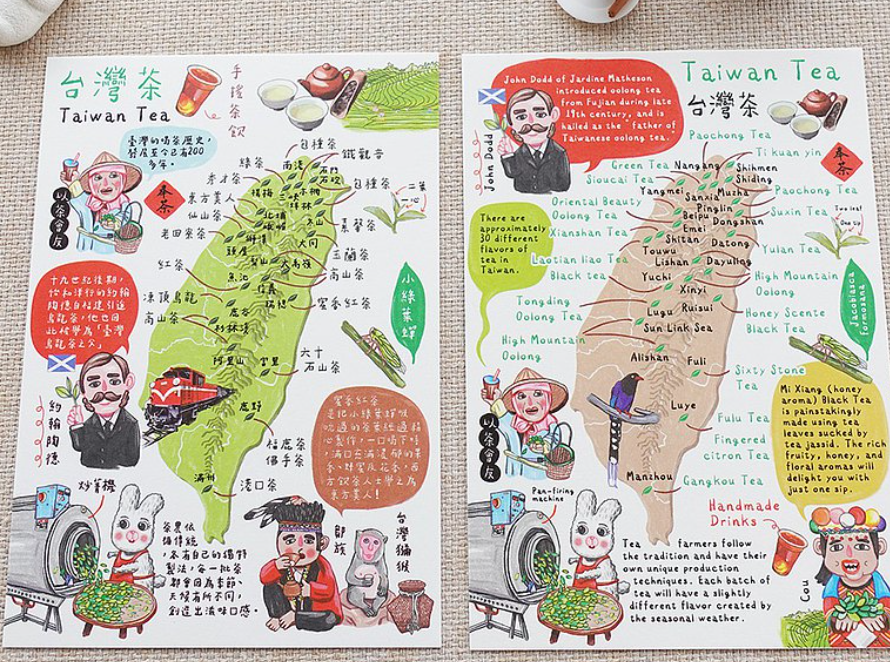 台灣茶
Taiwan Tea
手搖茶飲
臺灣的喝茶歷史,
發展至今已有200
多年。
以茶會友
奉茶
包種茶
鐵觀音
綠茶
南港
石門
東方美人
包種茶
二葉
一心
仙山茶
老田寮茶
素馨茶
大同
玉蘭茶
高山茶
紅茶
魚池
信義
凍頂烏龍
高山茶
鹿谷
杉林溪
蜜香紅茶
小綠葉蟬
阿里山
富里
六十
石山茶
鹿野
福鹿茶
佛手茶
滿州
港口茶
十九世紀後期,
怡和洋行的約翰
陶德自福建引進
烏龍茶,他也因
此被譽為「臺灣
烏龍茶之父」
約翰陶德
蜜香紅茶
炒菁機
茶農依
循傳統,
各有自己的獨特
製法,每一批茶
都會因為季節、
天候有所不同,
創造出滋味口感。
鄒族
台灣獼猴
John Dodd of Jardine Matheson
introduced oolong tea
from Fujian during late
19th century, and is
hailed as the "father of
Taiwanese oolong tea.
John Dodd
Taiwan Tea
台灣茶
奉茶
Paochong Tea
Ti kuan yin
Green Tea
Nangang
Shihmen
Shiding
Sioucai Tea
Yangmei
Muzha
Paochong Tea
Sanxia
Pinglin
Oriental Beauty
Oolong Tea
Beipu
Dongshan
Suxin Tea
Two leaf
One tip
Xianshan Tea
Emei
Shitan
Datong
Yulan Tea
Touwu
Laotian liao Tea
Lishan
Dayuling
Black tea
Yuchi
High Mountain
Oolong
Xinyi
Tongding
Oolong Tea
Lugu
Ruisui
Honey Scente
Black Tea
Sun Link Sea
High Mountain
Oolong
Alishan
Fuli
Sixty Stone
Tea
Luye
Fulu Tea
Fingered
citron Tea
Manzhou
Gangkou Tea
There are
approximately
30 different
flavors of
tea in
Taiwan.
Jacobiasca
formosana
以茶會友
Mi Xiang (honey
aroma) Black Tea
is painstakingly
made using tea
leaves sucked by
tea jassid. The rich
fruity, honey, and
floral aromas will
delight you with
just one sip.
Pan-firing
machine
Handmade
Drinks
Tea farmers follow
the tradition and have their
own unique production
techniques. Each batch of
tea will have a slightly
different flavor created by
the seasonal weather.
Cou